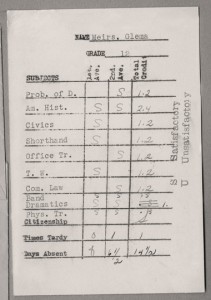 NAME Meirs, Glenn
GRADE 12
SUBJECTS 1st. Ave. 2nd. Ave. Total Credit
Prob. of D. S 1-2
Am. Hist. S S 2-4
Civics S S 1-2
Shorthand S S
Office Tr. S 1-2
T. W. S 1-2
Com. Law S 1-2
Band S S
Dramatics S S 1.
Phys. Tr. S S
Citizenship
Times Tardy 0 1 1
Days Absent
S Satisfactory
U Unsatisfactory